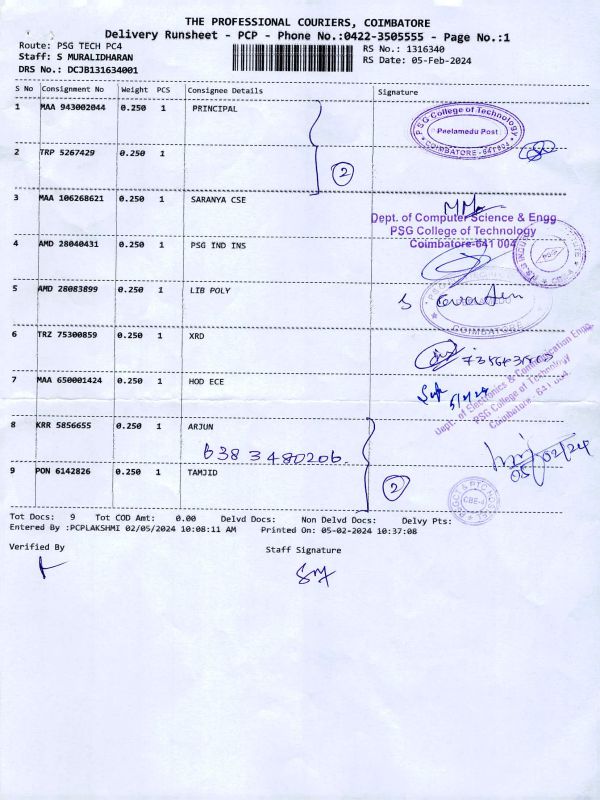 THE PROFESSIONAL COURIERS, COIMBATORE
Delivery Runsheet - PCP - Phone No.:0422-3505555 - Page No.:1
Route: PSG TECH PC4 RS No.: 1316340
Staff: S MURALIDHARAN RS Date: 05-Feb-2024
DRS No.: DCJB131634001
S No Consignment No Weight PCS Consignee Details Signature
1 MAA 943002044 0.250 1 PRINCIPAL
PSG College of Technology
Peelamedu Post
COIMBATORE - 641 004
2 TRP 5267429 0.250 1
2
3 MAA 106268621 0.250 1 SARANYA CSE
Dept. of Computer Science & Engg
PSG College of Technology
Coimbatore-641 004
4 AMD 28040431 0.250 1 PSG IND INS
5 AMD 28083899 0.250 1 LIB POLY
COIMBATORE
6 TRZ 75300859 0.250 1 XRD
7 MAA 650001424 0.250 1 HOD ECE
5/2/24
Dept. of Electronics & Communication Engg.
PSG College of Technology
Coimbatore - 641 004.
8 KRR 5856655 0.250 1 ARJUN
6383480206.
05/02/24
9 PON 6142826 0.250 1 TAMJID
2
CBE-4
Tot Docs: 9 Tot COD Amt: 0.00 Delvd Docs: Non Delvd Docs: Delvy Pts:
Entered By :PCPLAKSHMI 02/05/2024 10:08:11 AM Printed On: 05-02-2024 10:37:08
Verified By Staff Signature